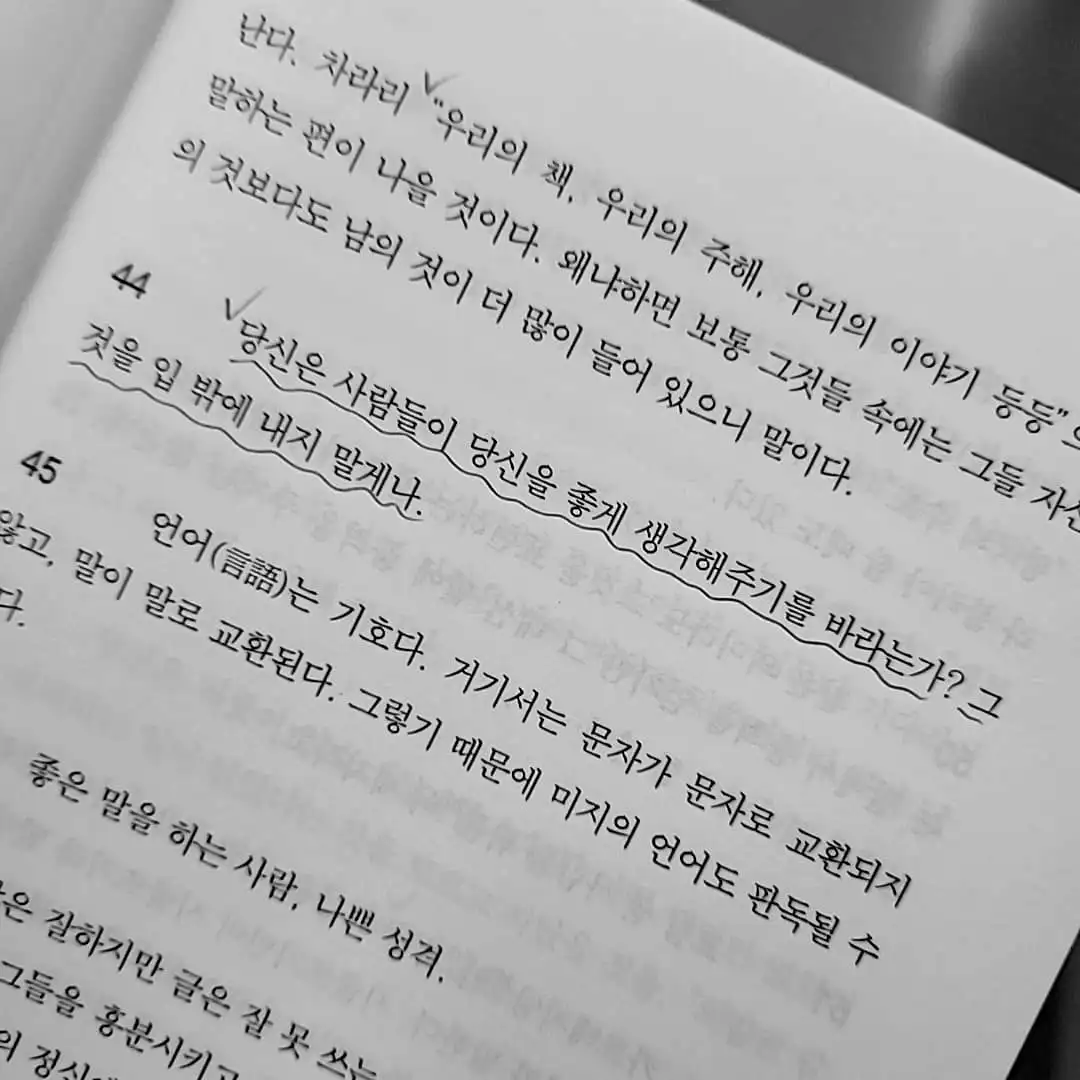 난다. 차라리 "우리의 책, 우리의 주해, 우리의 이야기 등등"으
말하는 편이 나을 것이다. 왜냐하면 보통 그것들 속에는 그들 자신
의 것보다도 남의 것이 더 많이 들어 있으니 말이다.
44
당신은 사람들이 당신을 좋게 생각해주기를 바라는가? 그
것을 입 밖에 내지 말게나.
45
언어(言語)는 기호다. 거기서는 문자가 문자로 교환되지
않고, 말이 말로 교환된다. 그렇기 때문에 미지의 언어도 판독될 수
다.
좋은 말을 하는 사람, 나쁜 성격.
잘하지만 글은 잘 못 쓰는
그들을 흥분시키고